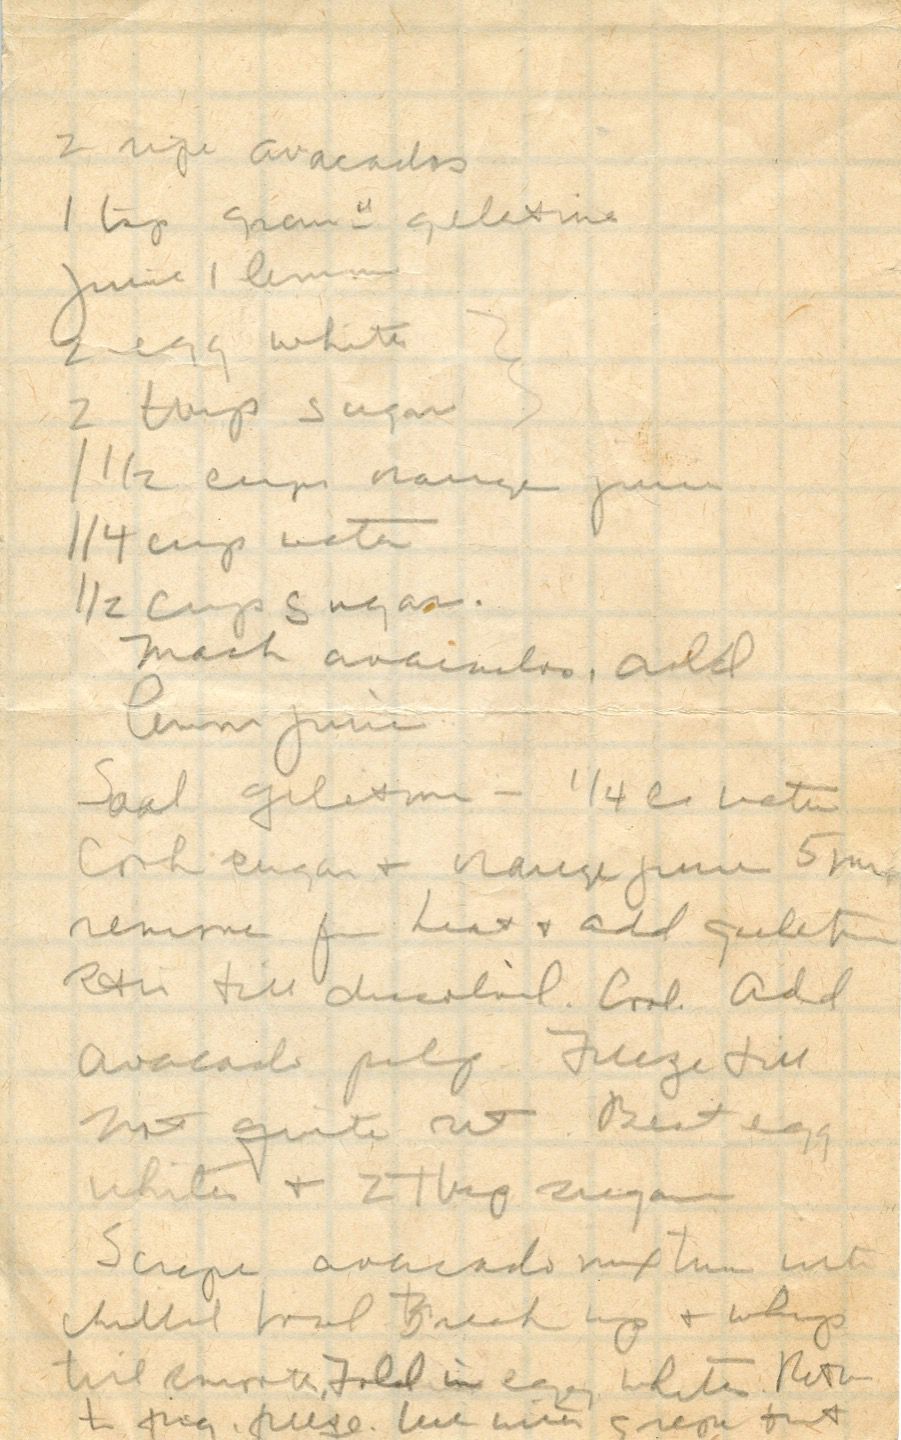 2 ripe avacados
1 tsp gran" geletine
Juice 1 lemon
2 egg whites
2 tbsp sugar
1 1/2 cups orange juice
1/4 cup water
1/2 cup sugar.
Mash avacados, add
lemon juice
Soak geletine - 1/4 c water
Cook sugar + orange juice 5 min
remove fm heat + add geletin
Stir till dissolved. Cool. Add
avacado pulp Freeze till
not quite set. Beat egg
whites + 2 Tbsp sugar
Scrape avacado mixture into
chilled bowl Break up + whip
till smooth, Fold in egg whites. Return
to tray. freeze. with grape fruit